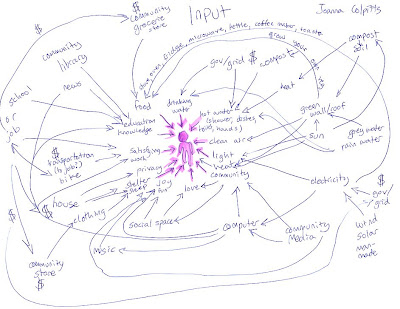 Input
Joanna Colpitts
$
community
grocerie
store
stove, oven, fridge, microwave, kettle, coffee maker, toaster
grow
your
own
food
community
library
news
school
or
job
$
education
knowledge
food
drinking
water
gov/
grid
$
compost
heat
compost
toilet
hot water
(shower, dishes,
teeth, hands)
green
wall/roof
grey water
rain water
sun
clean air
light
heat
community
satisfying
work
transportation
(to job)
bike
$
privacy
shelter
sleep
joy
fun
love
$
house
clothing
social space
music
computer
community
Media
electricity
$
gov/
grid
wind
solar
man-
made
community
store
$